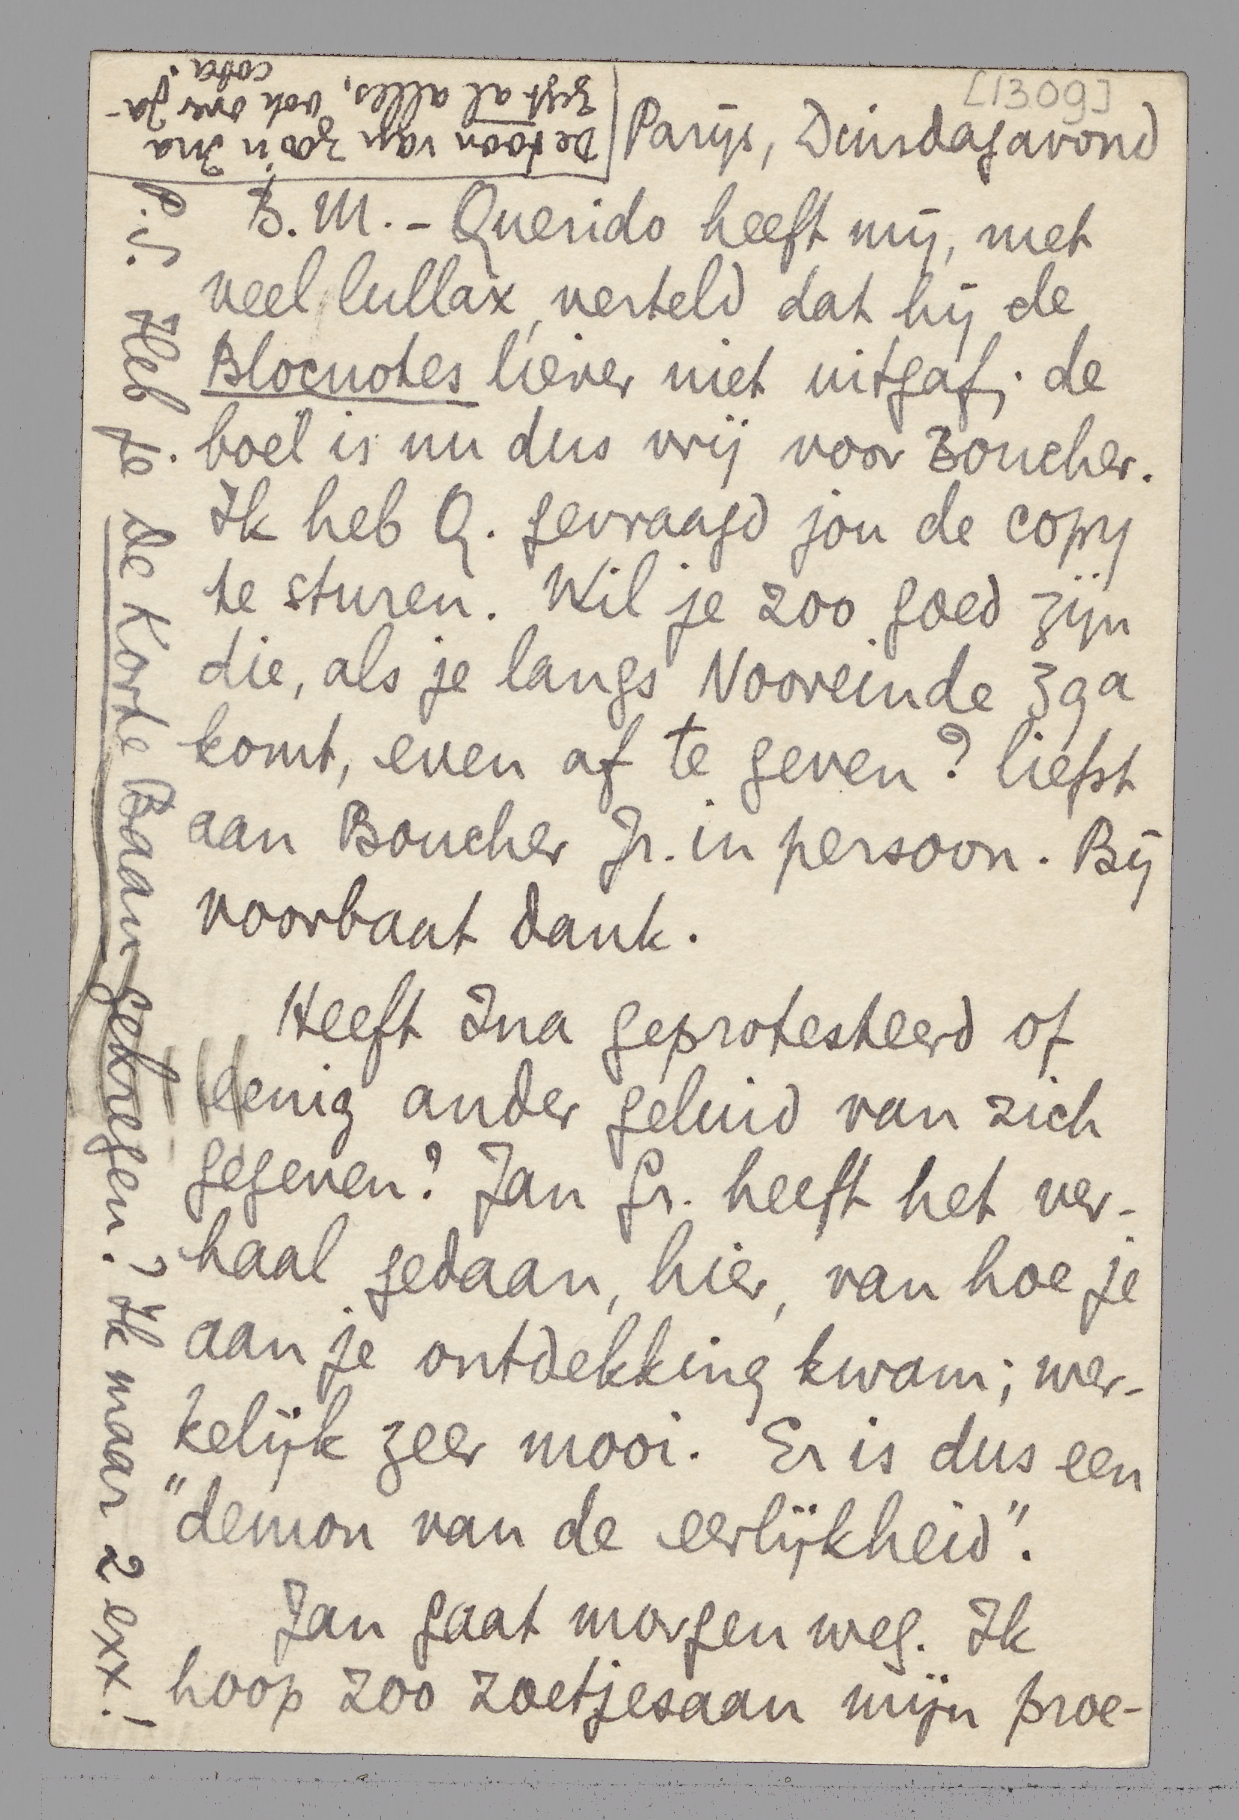 [1309]
Parijs, Dinsdagavond
B.M. - Querido heeft mij, met
veel lullax, verteld dat hij de
Blocnotes liever niet uitgaf; de
boel is nu dus vrij voor Boucher.
Ik heb Q. gevraagd jou de copy
te sturen. Wil je zoo goed zijn
die, als je langs Nooreinde 39a
komt, even af te geven? liefst
aan Boucher Jr. in persoon. Bij
voorbaat dank.
Heeft Ina geprotesteerd of
eenig ander geluid van zich
gegeven? Jan Gr. heeft het ver-
haal gedaan, hier, van hoe je
aan je ontdekking kwam; wer-
kelijk zeer mooi. Er is dus een
"demon van de eerlijkheid".
Jan gaat morgen weg. Ik
hoop zoo zoetjesaan mijn proe-
P.S. Heb je de Korte Baan gekregen? Ik maar 2 exx!
De toon van zoo'n Ina
zegt al alles, ook over Ja-
coba!